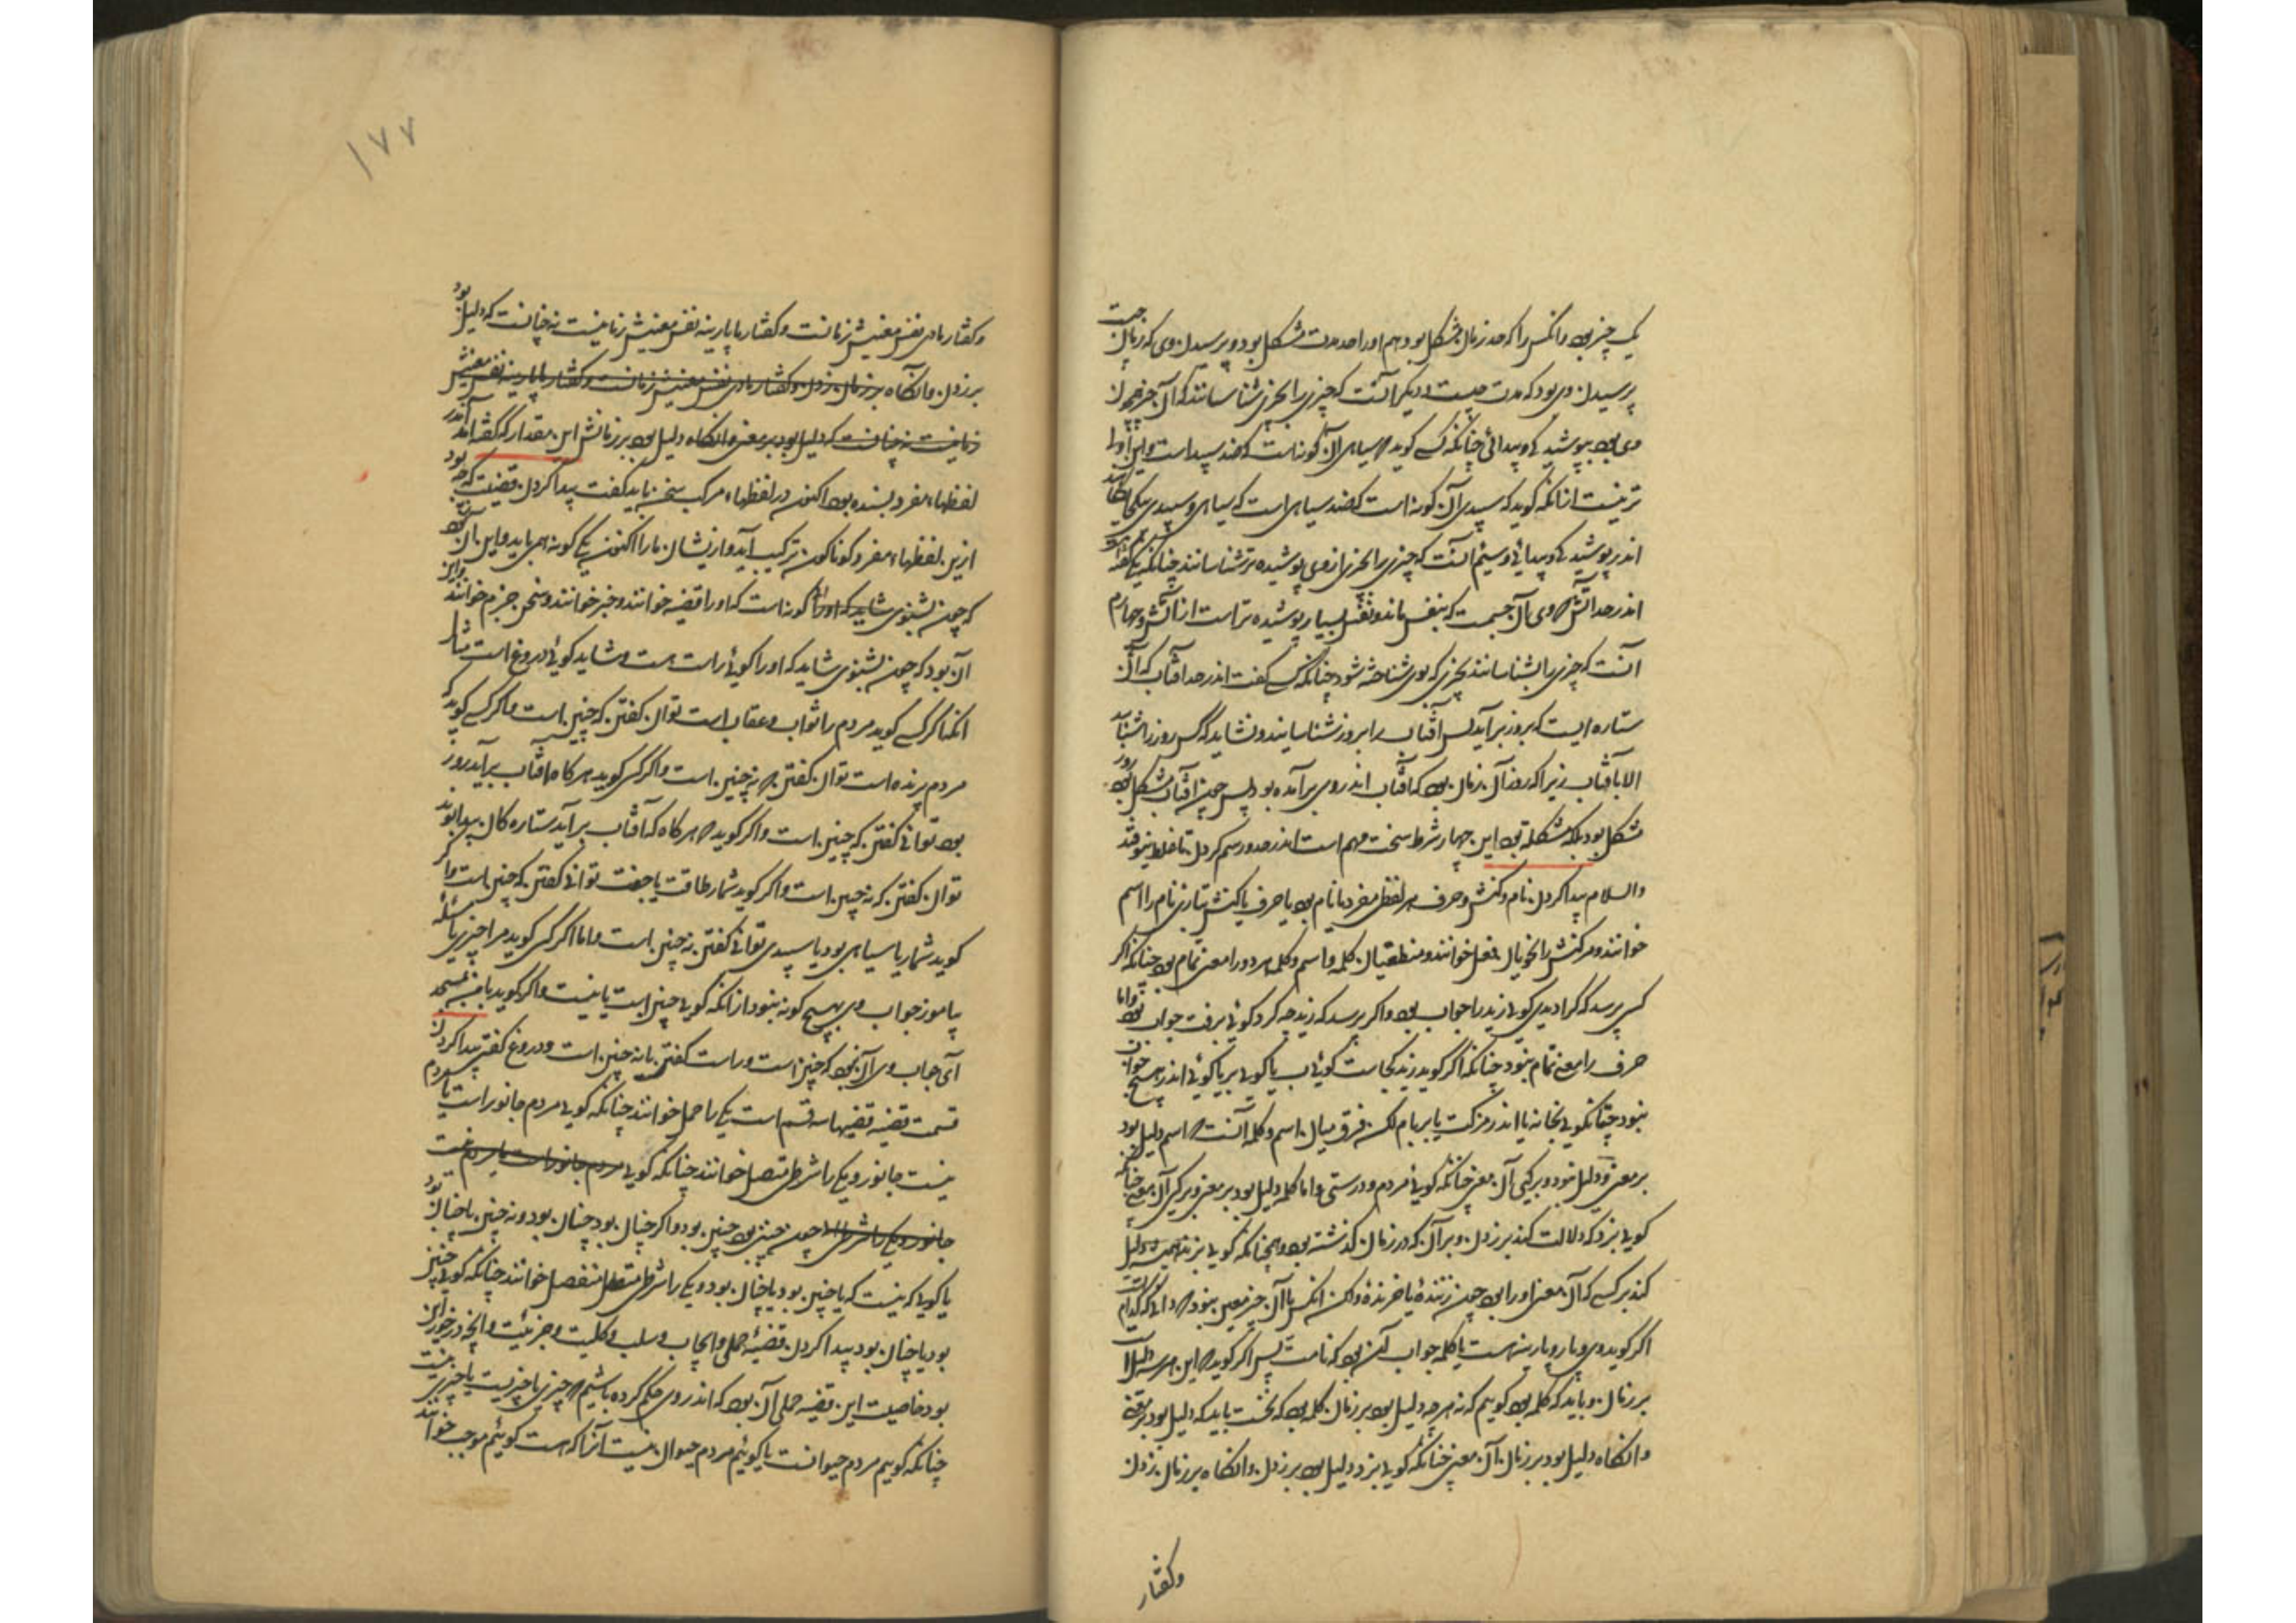 یک چیز بود وانکس را که حد زمان مشکل بود هم اورا حد مدت مشکل بود و پرسیدن وی که زمان چیست
پرسیدن وی بود که مدت چیست و دیگر آنست که چیزی را بچیزی شناسانند که آن چیز چون
وی بود بپوشیدگی و پیدائی چنانکه کسی گوید که سیاهی آن گونه است که ضد سپیدی است و این اولی
تر نیست ازانکه گوید که سپیدی آن گونه است که ضد سیاهی است که سیاهی و سپیدی یکجایگاهند
اندر پوشیدگی و پیدائی و سیم آنست که چیزی را بچیزی ازوی پوشیده تر شناسانند چنانکه گفته
اندر حد آتش که وی آن جسمست که بنفس ماند و نفس بسیار پوشیده تر است از آتش و چهارم
آنست که چیزی را بشناسانند بچیزی که بوی شناخته شود چنانکه کسی گفت اندر حد آفتاب که آفتاب آن
ستاره ایست که بروز برآید پس آفتاب را بروز شناسانیدند و نشاید که کس روز را شناسد
الا بآفتاب زیرا که روز آن زمان بود که آفتاب اندر وی برآمده بود پس چون آفتاب مشکل بود روز
مشکل بود بلکه مشکلتر بود این چهار شرط سخت مهم است اندر حد و رسم کردن تا غلط نیوفتد
والسلام پیدا کردن نام و کنش و حرف هر لفظی مفرد یا نام بود یا حرف یا کنش بتازی نام را اسم
خوانند و مر کنش را نحویان فعل خوانند و منطقیان کلمه و اسم و کلمه هر دو را معنی تمام بود چنانکه اگر
کسی پرسد که کرا دیدی گوئی زید را جواب بود و اگر پرسد که زید چه کرد گوئی برفت جواب بود واما
حرف را معنی تمام نبود چنانکه اگر گوید زید کجاست گوئی ب یا گوئی بر یا گوئی اندر هیچ جواب
نبود چنانکه گوئی بخانه یا اندر مزکت یا بر بام لکن فرق میان اسم و کلمه آنست که اسم دلیل بود
بر معنی و دلیل نبود بر کیی آن معنی چنانکه گوئی مردم و درستی و اما کلمه دلیل بود بر معنی و بر کیی آن معنی چنانکه
گوئی بزد که دلالت کند بر زدن و بر آن که در زمان گذشته بود و همچنانکه گوئی بزند و همیشه دلیل
کند بر کسی که آن معنی اورا بود چون زننده یا خرنده ولکن انکس یا آن چیز معین نبود که دانی که کدام است
اگر گوید دی و پار و پارینه اسمست یا کلمه جواب آن بود که نامست پس اگر گوید که این هر سه دلیل است
بر زمان و باید که کلمه بود گوییم که نه هر چه دلیل بود بر زمان کلمه بود که نخست باید که دلیل بود بر معنی
وانگاه دلیل بود بر زمان آن معنی چنانکه گوئی بزد دلیل بود بر زدن وانگاه بر زمان زدن
وگفتار
۱۷۷
وگفتار ما دی نفس معنیش زمانست وگفتار ما پارینه نفس معنیش زمانیست نه چنانست که دلیل بود
بر زدن وانگاه بر زمان زدن وگفتار ما دی نفس معنیش زمانست وگفتار ما پارینه نفس معنیش
زمانیست نه چنانست که دلیل بود بر معنی وانگاه دلیل بود بر زمانش این مقدار که گفته آمد اندر
لفظهاء مفرد بسنده بود اکنون در لفظهاء مرکب سخن باید گفت پیدا کردن قضیت که چه بود
ازین لفظهاء مفرد گوناگون ترکیب آید و ازیشان ما را اکنون یکی گونه همی باید و این آن بود
که چون بشنوی شاید که گونه است که اورا قضیه خوانند و خبر خوانند و سخن جزم خوانند و این
آن بود که چون بشنوی شاید که اورا گوئی راست است و شاید گوئی دروغ است مثال
آنکه اگر کسی گوید مردم را ثواب و عقاب است توان گفتن که چنین است و اگر کسی گوید که
مردم پرنده است توان گفتن که نه چنین است و اگر کسی گوید هر گاه آفتاب برآید روز
بود توانی گفتن که چنین است و اگر گوید که هر گاه که آفتاب برآید ستارگان پیدا بوند
توان گفتن که نه چنین است و اگر گوید شمار طاقست یا جفت توانی گفتن که چنین است و اگر
گوید شمار یا سیاهی بود یا سپیدی توانی گفتن نه چنین است و اما اگر کسی گوید مرا چیزی یا مسئله
بیاموز جواب وی بهیچ گونه نبود ازانکه گوئی چنین است یا نیست و اگر گوید با من بمسجد
آی جواب وی آن نبود که چنین است و راست گفتی یا نه چنین است و دروغ گفتی پیدا کردن
قسمت قضیه قضیها سه قسم است یکی را حملی خوانند چنانکه گوئی مردم جانور است یا مردم
نیست جانور و یکی را شرطی متصل خوانند چنانکه گوئی مردم جانور است یا مردم نیست
جانور و یکی را شرطی چون چنین بود چنین بود و اگر چنان بود چنان بود و نه چنین یا چنان بود
یا گوئی که نیست که یا چنین بود یا چنان بود و یکی را شرطی منفصل خوانند چنانکه گوئی چنین
بود یا چنان بود پیدا کردن قضیه حملی و ایجاب و سلب و کلیت و جزئیت و آنچه در خور این
بود خاصیت این قضیه حملی آن بود که اندر وی حکم کرده باشیم که چیزی یا چیزیست یا چیزی نیست
چنانکه گوییم مردم حیوانست یا گوییم مردم حیوان نیست آنرا که هست گوییم موجب خوانند